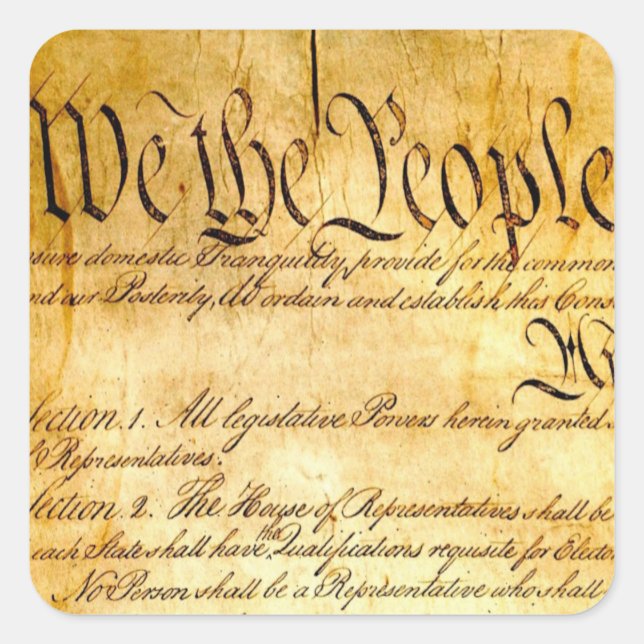 We the People
nsure domestic Tranquility, provide for the common
nd our Posterity, do ordain and establish this Cons
ection. 1. All legislative Powers herein granted s
f Representatives.
ection. 2. The House of Representatives shall be
each State shall have the Qualifications requisite for Electo
No Person shall be a Representative who shall